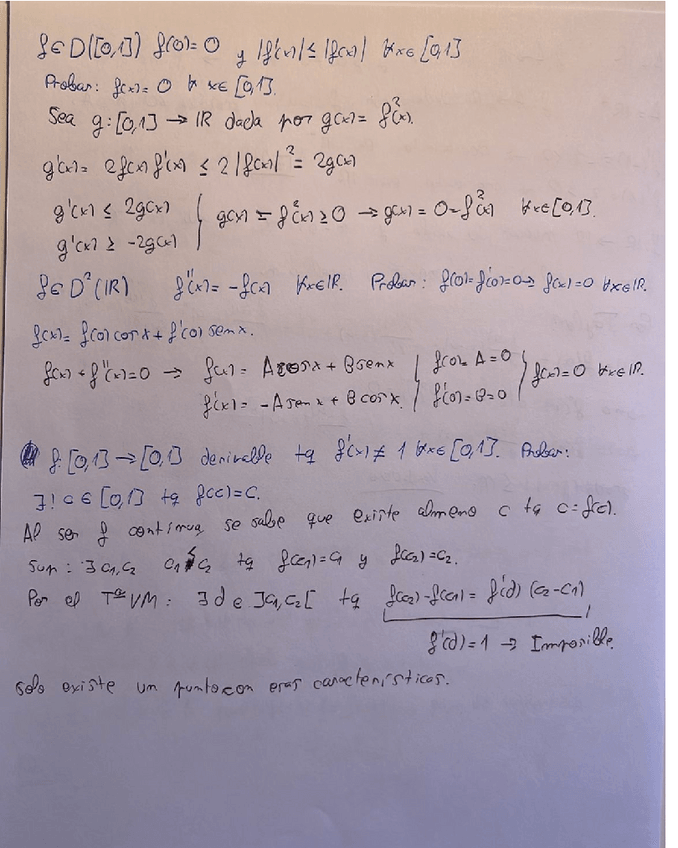 f∈D([0,1]) f(0)=0 y |f'(x)| ≤ |f(x)| ∀x∈[0,1]
Probar: f(x)=0 ∀x∈[0,1].
Sea g:[0,1]→IR dada por g(x)= f²(x).
g'(x)= 2f(x)f'(x) ≤ 2|f(x)|² = 2g(x)
g'(x) ≤ 2g(x) } g(x) = f²(x) ≥ 0 → g(x) = 0 = f²(x) ∀x∈[0,1].
g'(x) ≥ -2g(x)
f∈D²(IR) f''(x)= -f(x) ∀x∈IR. Probar: f(0)=f'(0)=0 → f(x)=0 ∀x∈IR.
f(x)= f(0)cosx + f'(0)senx.
f(x)+f''(x)=0 → f(x)= Acosx + Bsenx } f(0)= A=0 } f(x)=0 ∀x∈IR.
f'(x)= -Asenx + Bcosx. f'(0)=B=0
f:[0,1]→[0,1] derivable tq f'(x)≠1 ∀x∈[0,1]. Probar:
∃! c∈[0,1] tq f(c)=c.
Al ser f continua, se sabe que existe almeno c tq c=f(c).
Sup: ∃ c₁,c₂ c₁<c₂ tq f(c₁)=c₁ y f(c₂)=c₂.
Por el Tª VM: ∃ d∈]c₁,c₂[ tq f(c₂)-f(c₁)= f'(d) (c₂-c₁)
f'(d)=1 → Imposible.
Solo existe un punto con esas características.